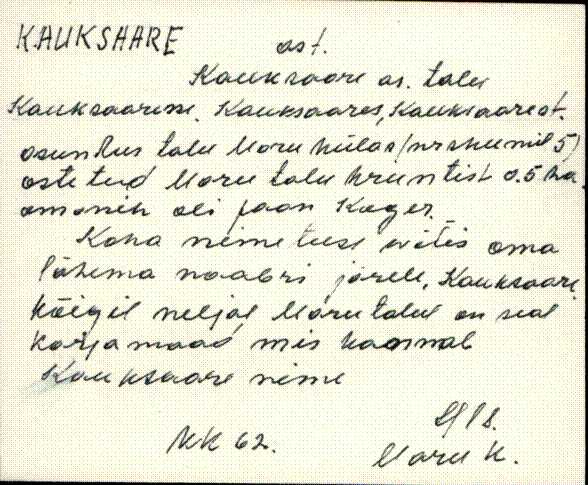 KAUKSAARE
ast.
Kauksaare as. talu
Kauksaaresse, Kauksaares, Kauksaarest.
asundus talu Moru külas (nr skeemil 5)
ostetud Moru talu kruntist 0.5 ha
omanik oli Jaan Kager.
Koha nimetuse võtis oma
lähema naabri järele, Kauksaare.
kõigil neljal Morutalul on seal
karjamaad, mis kannab
Kauksaare nime
KK 62.
Moru k.